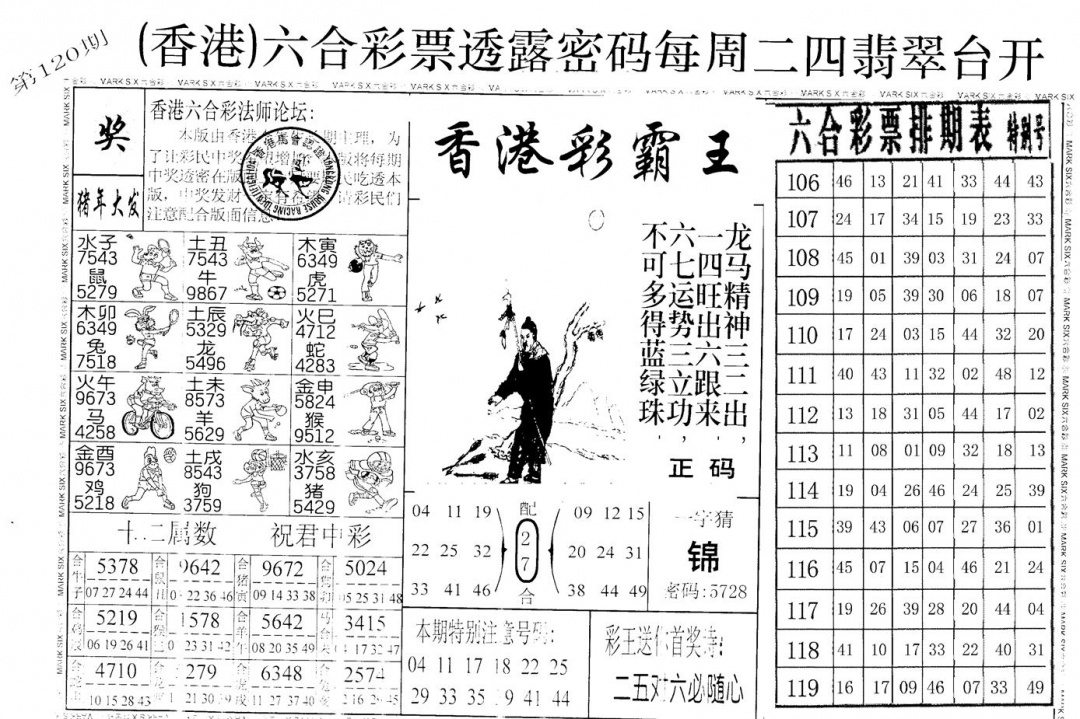 第120期
(香港)六合彩票透露密码每周二四翡翠台开
MARK SIX六合彩
奖
猪年大发
香港六合彩法师论坛:
本版由香港
主理，为
了让彩民中奖
版将每期
中奖透密在版
民吃透本
版，中奖发财
请彩民们
注意配合版面信息
水子
7543
鼠
5279
土丑
7543
牛
9867
木寅
6349
虎
5271
木卯
6349
兔
7518
土辰
5329
龙
5496
火巳
4712
蛇
4283
火午
9673
马
4258
土未
8573
羊
5629
金申
5824
猴
9512
金酉
9673
鸡
5218
土戌
8543
狗
3759
水亥
3758
猪
5429
十二属数 祝君中彩
5378
07 27 24 44
9642
22 36 46
9672
09 14 33 38
5024
05 25 31 48
5219
06 19 26 41
1578
23 31 42
5642
08 20 35 49
3415
17 32 47
4710
10 15 28 43
279
21 30 39
6348
11 27 37 40
2574
香港彩霸王
龙马精神三三出，
一四旺出六跟来
六七运势三立功，
不可多得蓝绿珠
正码
04 11 19
22 25 32
33 41 46
配
27
合
09 12 15
20 24 31
38 44 49
一字猜
锦
密码:5728
本期特别注意号码:
04 11 17 18 22 25
29 33 35 39 41 44
彩王送你首奖诗:
二五对六必随心
六合彩票排期表 特别号
106 46 13 21 41 33 44 43
107 24 17 34 15 19 23 33
108 45 01 39 03 31 24 07
109 19 05 39 30 06 18 07
110 17 24 03 15 44 32 20
111 40 43 11 32 02 48 12
112 13 18 31 05 44 17 02
113 11 08 01 09 32 18 13
114 19 04 26 46 24 25 39
115 39 43 06 07 27 36 01
116 45 07 15 04 46 21 24
117 19 26 39 28 20 44 04
118 41 10 17 33 22 40 31
119 16 17 09 46 07 33 49